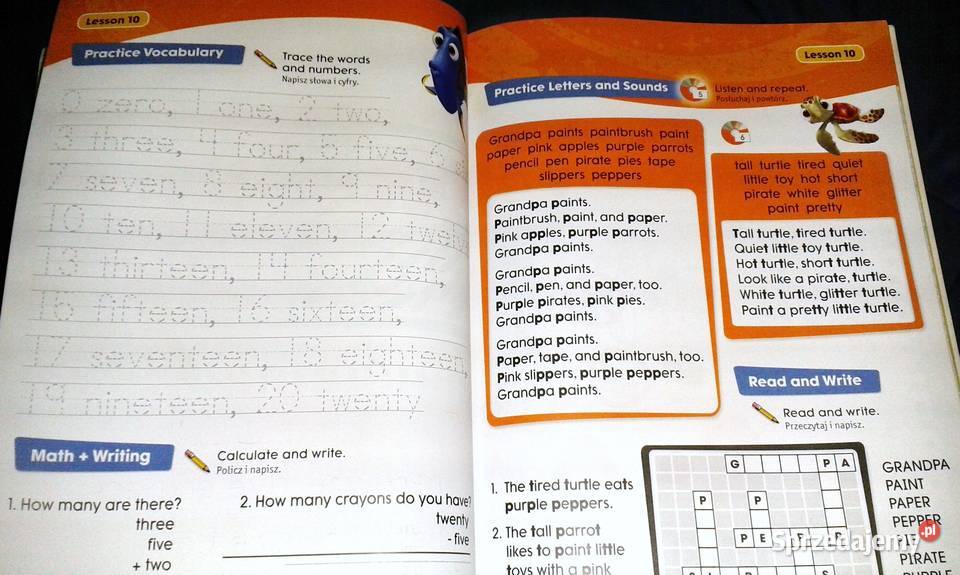 Lesson 10
Practice Vocabulary
Trace the words
and numbers.
Napisz słowa i cyfry.
0 zero, 1 one, 2 two,
3 three, 4 four, 5 five, 6
7 seven, 8 eight, 9 nine,
10 ten, 11 eleven, 12 twelve
13 thirteen, 14 fourteen,
16 fifteen, 16 sixteen,
17 seventeen, 18 eighteen,
19 nineteen, 20 twenty
Math + Writing
Calculate and write.
Policz i napisz.
1. How many are there?
three
five
+ two
2. How many crayons do you have?
twenty
- five
Lesson 10
Practice Letters and Sounds
5
Listen and repeat.
Posłuchaj i powtórz.
6
Grandpa paints paintbrush paint
paper pink apples purple parrots
pencil pen pirate pies tape
slippers peppers
Grandpa paints.
Paintbrush, paint, and paper.
Pink apples, purple parrots.
Grandpa paints.
Grandpa paints.
Pencil, pen, and paper, too.
Purple pirates, pink pies.
Grandpa paints.
Grandpa paints.
Paper, tape, and paintbrush, too.
Pink slippers, purple peppers.
Grandpa paints.
tall turtle tired quiet
little toy hot short
pirate white glitter
paint pretty
Tall turtle, tired turtle.
Quiet little toy turtle.
Hot turtle, short turtle.
Look like a pirate, turtle.
White turtle, glitter turtle.
Paint a pretty little turtle.
Read and Write
Read and write.
Przeczytaj i napisz.
1. The tired turtle eats
purple peppers.
2. The tall parrot
likes to paint little
toys with a pink
G P A
P P
P E
GRANDPA
PAINT
PAPER
PEPPER
PIE
PIRATE
PURPLE
Sprzedajemy.pl